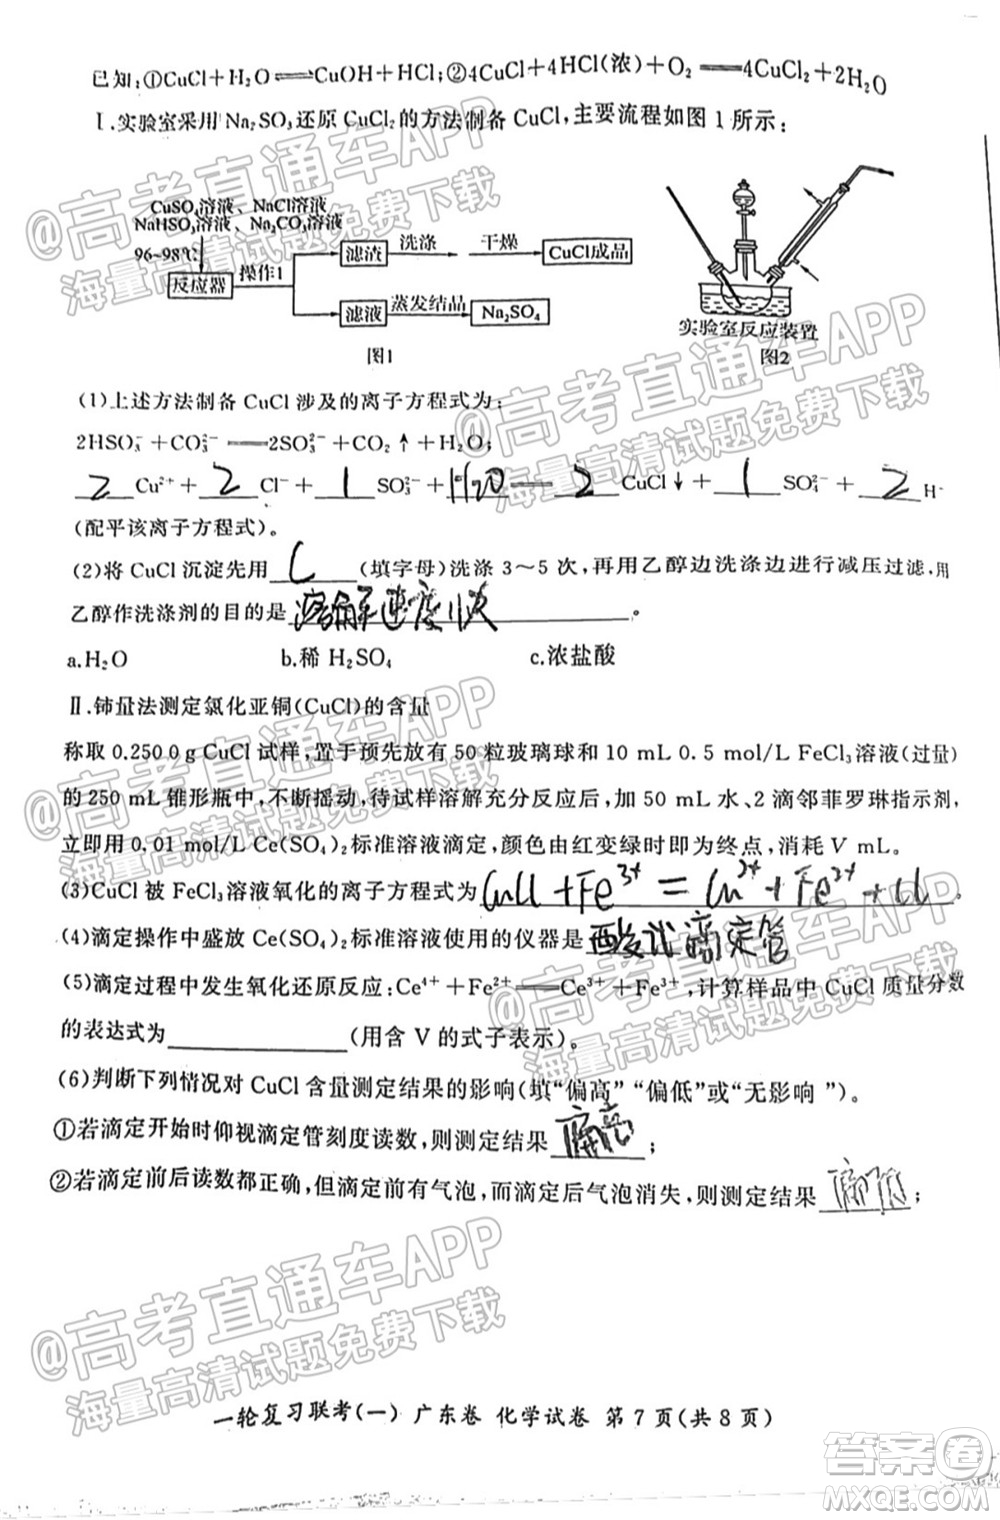 已知:①CuCl+H₂O⇌CuOH+HCl;②4CuCl+4HCl(浓)+O₂══4CuCl₂+2H₂O
Ⅰ.实验室采用 Na₂SO₃还原 CuCl₂的方法制备 CuCl,主要流程如图 1 所示:
CuSO₄溶液、NaCl溶液
NaHSO₃溶液、Na₂CO₃溶液
96~98℃
反应器 操作1 滤渣 洗涤 干燥 CuCl成品
滤液 蒸发结晶 Na₂SO₄
图1
实验室反应装置
图2
(1)上述方法制备 CuCl 涉及的离子方程式为:
2HSO₃⁻+CO₃²⁻══2SO₃²⁻+CO₂↑+H₂O;
2 Cu²⁺+ 2 Cl⁻+ 1 SO₃²⁻+ H₂O ══ 2 CuCl↓+ 1 SO₄²⁻+ 2 H
(配平该离子方程式)。
(2)将 CuCl 沉淀先用 C (填字母)洗涤 3～5 次,再用乙醇边洗涤边进行减压过滤,用
乙醇作洗涤剂的目的是 溶解速度 。
a.H₂O b.稀 H₂SO₄ c.浓盐酸
Ⅱ.铈量法测定氯化亚铜(CuCl)的含量
称取 0.250 0 g CuCl 试样,置于预先放有 50 粒玻璃球和 10 mL 0.5 mol/L FeCl₃溶液(过量)
的 250 mL 锥形瓶中,不断摇动,待试样溶解充分反应后,加 50 mL 水、2 滴邻菲罗啉指示剂,
立即用 0.01 mol/L Ce(SO₄)₂标准溶液滴定,颜色由红变绿时即为终点,消耗 V mL。
(3)CuCl 被 FeCl₃溶液氧化的离子方程式为 CuCl+Fe³⁺=Cu²⁺+Fe²⁺+Cl 。
(4)滴定操作中盛放 Ce(SO₄)₂标准溶液使用的仪器是 酸式滴定管
(5)滴定过程中发生氧化还原反应:Ce⁴⁺+Fe²⁺══Ce³⁺+Fe³⁺,计算样品中 CuCl 质量分数
的表达式为 (用含 V 的式子表示)。
(6)判断下列情况对 CuCl 含量测定结果的影响(填“偏高”“偏低”或“无影响 ”)。
①若滴定开始时仰视滴定管刻度读数,则测定结果 偏高 ;
②若滴定前后读数都正确,但滴定前有气泡,而滴定后气泡消失,则测定结果 ;
一轮复习联考(一) 广东卷 化学试卷 第 7 页(共 8 页)
@高考直通车APP
海量高清试题免费下载
@高考直通车APP
海量高清试题免费下载
@高考直通车APP
海量高清试题免费下载
@高考直通车APP
海量高清试题免费下载
@高考直通车APP
海量高清试题免费下载
@高考直通车APP
海量高清试题免费下载
答案卷
MXQE.COM